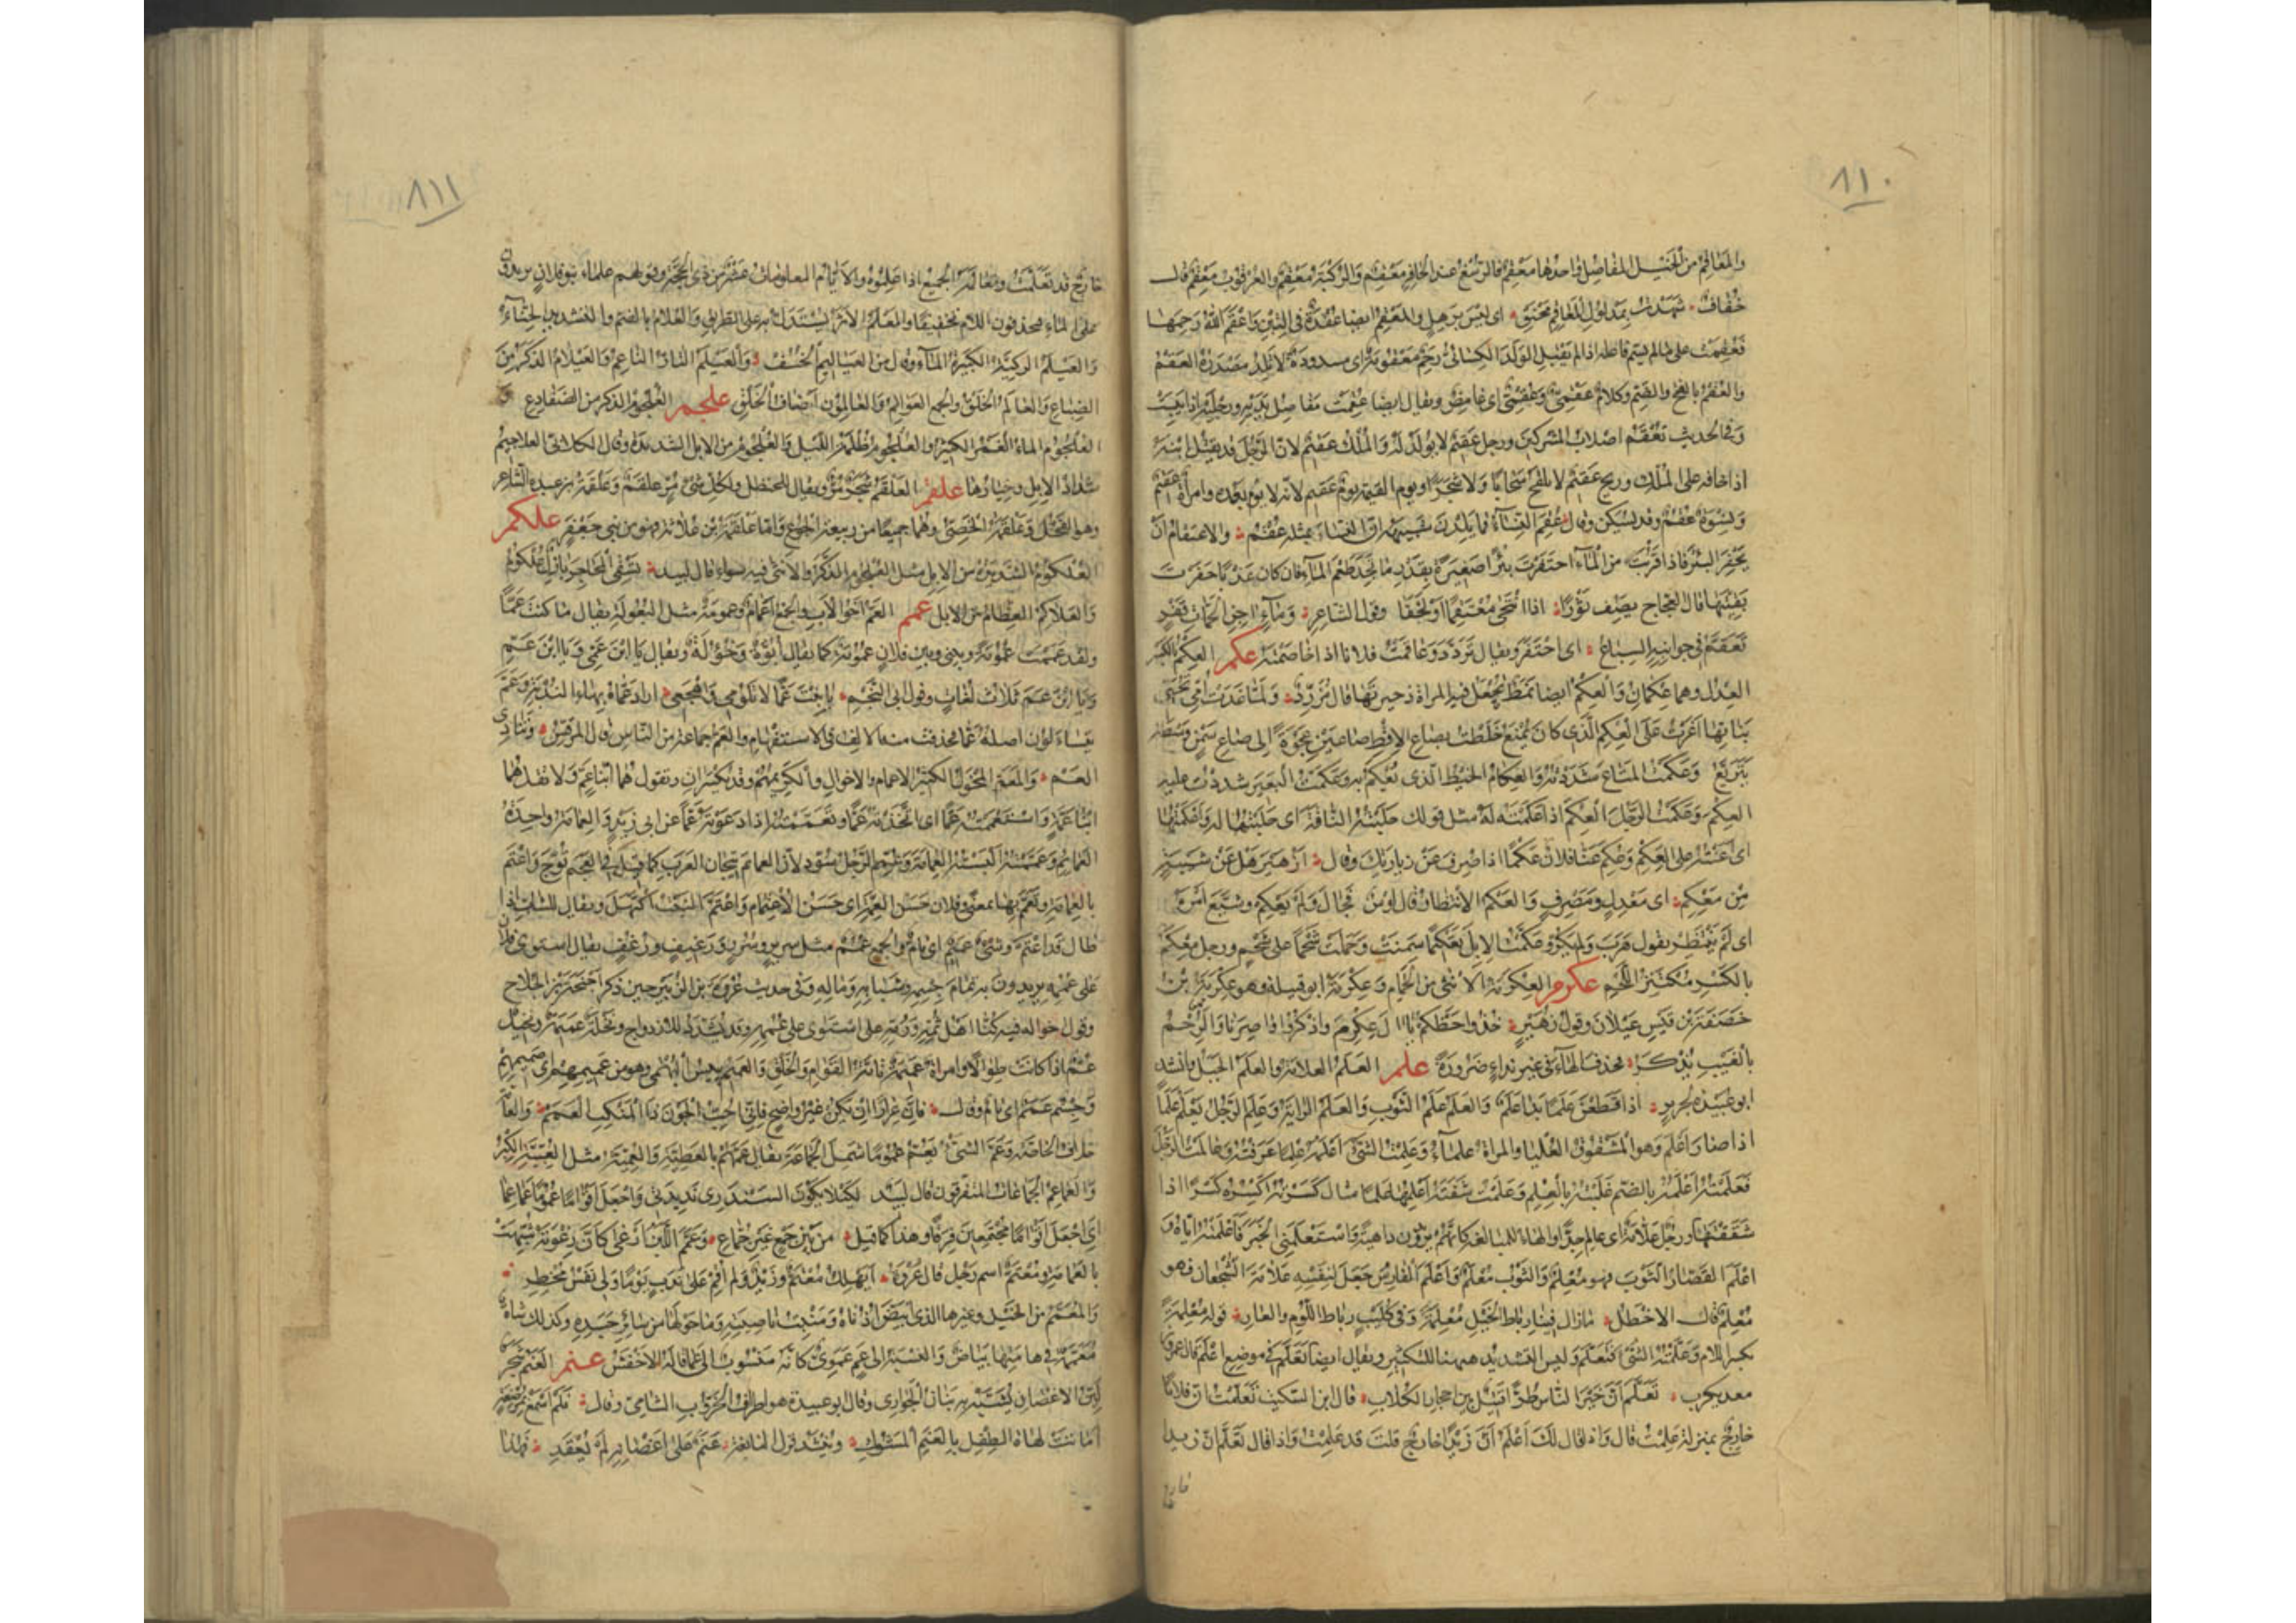 ٨١٠
والمعاقم من الخيل المفاصل واحدها معقم فالرسغ عند الحافر معقم والركبة معقم والعرقوب معقم قال
خفاف شهدت بمدلوك المعاقم محنق اى ليس برهل والمعقم ايضا عقدة فى التبن واعقم الله رحمها
فعقمت على ما لم يسم فاعله اذا لم يقبل الولد الكسائى رحم معقومة اى مسدودة لا تلد مصدره العقم
والعقم بالفتح والضم وكلام عقمى وعقمى اى غامض ويقال ايضا عقمت مفاصل يديه ورجليه اذا يبست
وفى الحديث تعقم اصلاب المشركين ورجل عقيم لا يولد له والملك عقيم لان الرجل قد يقتل ابنه
اذا خافه على الملك وريح عقيم لا تلقح سحابا ولا شجرا ويوم القيمة يوم عقيم لانه لا يوم بعده وامرأة عقيم
ونسوة عقم وقد يسكن وقال عقم النساء فما يلدن شبيهه ان النساء بمثله عقم والاعتقام ان
يحفر البئر فاذا قربت من الماء احتفرت بئرا صغيرة بقدر ما تجد طعم الماء فان كان عذبا حفرت
بقيتها قال العجاج يصف ثورا اذا انتحى معتقما او لجفا وقول الشاعر وماء اجن الجمات قفر
تعقم فى جوانبه السباع اى احتفر ويقال تردد وعاقمت فلانا اذا خاصمته عكم العكم بالكسر
العدل وهما عكمان والعكم ايضا نمط تجعل فيه المراة ذخيرتها قال مزرد ولما غدت امى تحيى
بناتها اغرت على العكم الذى كان يمنع خلطت بصاع الاقط صاعين عجوة الى صاع سمن وسطه
يتريع وعكمت المتاع شددته والعكام الخيط الذى يعكم به وعكمت البعير شددت عليه
العكم وعكمت الرجل العكم اذا عكمته له مثل قولك حلبته الناقة اى حلبتها له واعكمتها
اى اعنته على العكم وعكم عنا فلان عكما اذا صرف عن زيارتك وقال ازهير هل عن شيبة
من معكم اى معدل ومصرف والعكم الانتظار قال اوس فجال ولم يعكم وشيع امره
اى لم ينتظر يقول هرب ولم يكر وعكمت الابل تعكم عكما سمنت وحملت شحما على شحم ورجل معكم
بالكسر مكتنز اللحم عكرم العكرمة الانثى من الحمام وعكرمة ابو قبيلة وهو عكرمة بن
خصفة بن قيس عيلان وقول زهير خذوا حظكم يا ال عكرم واذكروا اواصرنا والرحم
بالغيب تذكر فحذف الهاء فى غير نداء ضرورة علم العلم العلامة والعلم الجبل وانشد
ابو عبيدة لجرير اذا قطعن علما بدا علم والعلم علم الثوب والعلم الراية وعلم الرجل يعلم علما
اذا صار اعلم وهو المشقوق الشفة العليا والمراة علماء وعلمت الشئ اعلمه علما عرفته وعالمت الرجل
فعلمته اعلمه بالضم غلبته بالعلم وعلمت شفته اعلمها علما مثال كسرته اكسره كسرا اذا
شققتها ورجل علامة اى عالم جدا والهاء للمبالغة كانهم يريدون داهية واستعلمنى الخبر فاعلمته اياه و
اعلم القصار الثوب فهو معلم والثوب معلم واعلم الفارس جعل لنفسه علامة الشجعان فهو
معلم قال الاخطل ما زال فينا رباط الخيل معلمة وفى كليب رباط اللوم والعار قوله معلمة
بكسر اللام وعلمته الشئ فتعلم وليس التشديد ههنا للتكثير ويقال ايضا تعلم فى موضع اعلم قال عمرو بن
معديكرب تعلم ان خير الناس طرا قتيل بين احجار الكلاب قال ابن السكيت تعلمت ان فلانا
خارج بمنزلة علمت قال واذا قال لك اعلم ان زيدا خارج قلت قد علمت واذا قال تعلم ان زيدا
خارج
٨١١
خارج قد تعلمت وتعالمه الجميع اذا علموه والايام المعلومات عشر من ذى الحجة وقولهم علماء بنو فلان يريدون
على الماء فيحذفون اللام تخفيفا والمعلم الاثر يستدل به على الطريق والعلام بالضم والتشديد الحناء
والعيلم الركية الكثيرة الماء وقال من العياليم الخسف والعيلم التار الناعم والعيلام الذكر من
الضباع والعالم الخلق والجمع العوالم والعالمون اصناف الخلق علجم العلجوم الذكر من الضفادع و
العلجوم الماء الغمر الكثير والعلجوم ظلمة الليل والعلجوم من الابل الشديدة وقال الكلابى العلاجيم
شداد الابل وخيارها علقم العلقم شجر مر ويقال للحنظل ولكل شئ مر علقم وعلقمة بن عبدة الشاعر
وهو الفحل وعلقمة الخصى وهما جميعا من ربيعة الجوع واما علقمة بن علاثة فهو من بنى جعفر علكم
العلكوم الشديدة من الابل مثل العلجوم الذكر والانثى فيه سواء قال لبيد تسقى المحاجر بازل علكوم
والعلاكم العظام من الابل عمم العم اخو الاب والجمع اعمام وعمومة مثل البعولة يقال ما كنت عما
ولقد عممت عمومة وبينى وبين فلان عمومة كما يقال ابوة وخؤولة ويقال يا ابن عمى ويا ابن عم
ويا ابن عم ثلاث لغات وقول ابى النجم يا ابنت عما لا تلومى واهجعى اراد عماه بهاء الندبة وعم
يتساءلون اصله عما فحذفت منه الالف فى الاستفهام والعم جماعة من الناس قال المرقش وتنادى
العم والمعم المخول الكثير الاعمام والاخوال والكريمهم وقد يكسران وتقول هما ابنا عم ولا تقل هما
ابنا عمة واستعممته عما اى اتخذته عما وتعممته اذا دعوته عما عن ابى زيد والعمامة واحدة
العمائم وعممته البسته العمامة وعمم الرجل سود لان العمائم تيجان العرب كما قيل فى العجم توج واعتم
بالعمامة وتعمم بها بمعنى وفلان حسن العمة اى حسن الاعتمام واعتم النبت اكتهل ويقال للشاب اذا
طال قد اعتم وشئ عميم اى تام والجمع عمم مثل سرير وسرر ورغيف ورغف يقال استوى فلان
على عممه يريدون به تمام جسمه وشبابه وماله وفى حديث عروة بن الزبير حين ذكر احيحة بن الجلاح
وقول اخواله فيه كنا اهل ثمه ورمه حتى استوى على عممه وقد يشدد للازدواج ونخلة عميمة ونخيل
عم اذا كانت طوالا وامراة عميمة تامة القوام والخلق والعميم يبيس البهمى وهو من عميمهم اى صميمهم
وجسم عمم اى تام وقال فان عرارا ان يكن غير واضح فانى احب الجون ذا المنكب العمم والعامة
خلاف الخاصة وعم الشئ يعم عموما شمل الجماعة يقال عمهم بالعطية والعمية مثل العبية الكبر
والعماعم الجماعات المتفرقون قال لبيد لكيلا يكون السندرى نديدتى واجعل اقواما عموما عماعما
اى اجعل اقواما مجتمعين فرقا وهذا كما قيل من بين جمع غير جماع وعمم اللبن ارغى كان رغوته شبهت
بالعمامة ومعتم اسم رجل قال عروة ايهلك معتم وزيد ولم اقم على ندب يوما ولى نفس مخطر
والمعمم من الخيل وغيرها الذى ابيض اذناه ومنبت ناصيته وما حولها من سائر جسده وكذلك شاة
معممة فى هامتها بياض والنسبة الى عم عموى كانه منسوب الى عما قاله الاخفش عنم العنم شجر
لين الاغصان يشبه به بنان الجوارى وقال ابو عبيدة هو اطراف الخروب الشامى وقال فلم اسمع بمرضعة
امالت لهاة الطفل بالعنم المسوك وينشد قول النابغة عنم على اغصانه لم يعقد فهذا